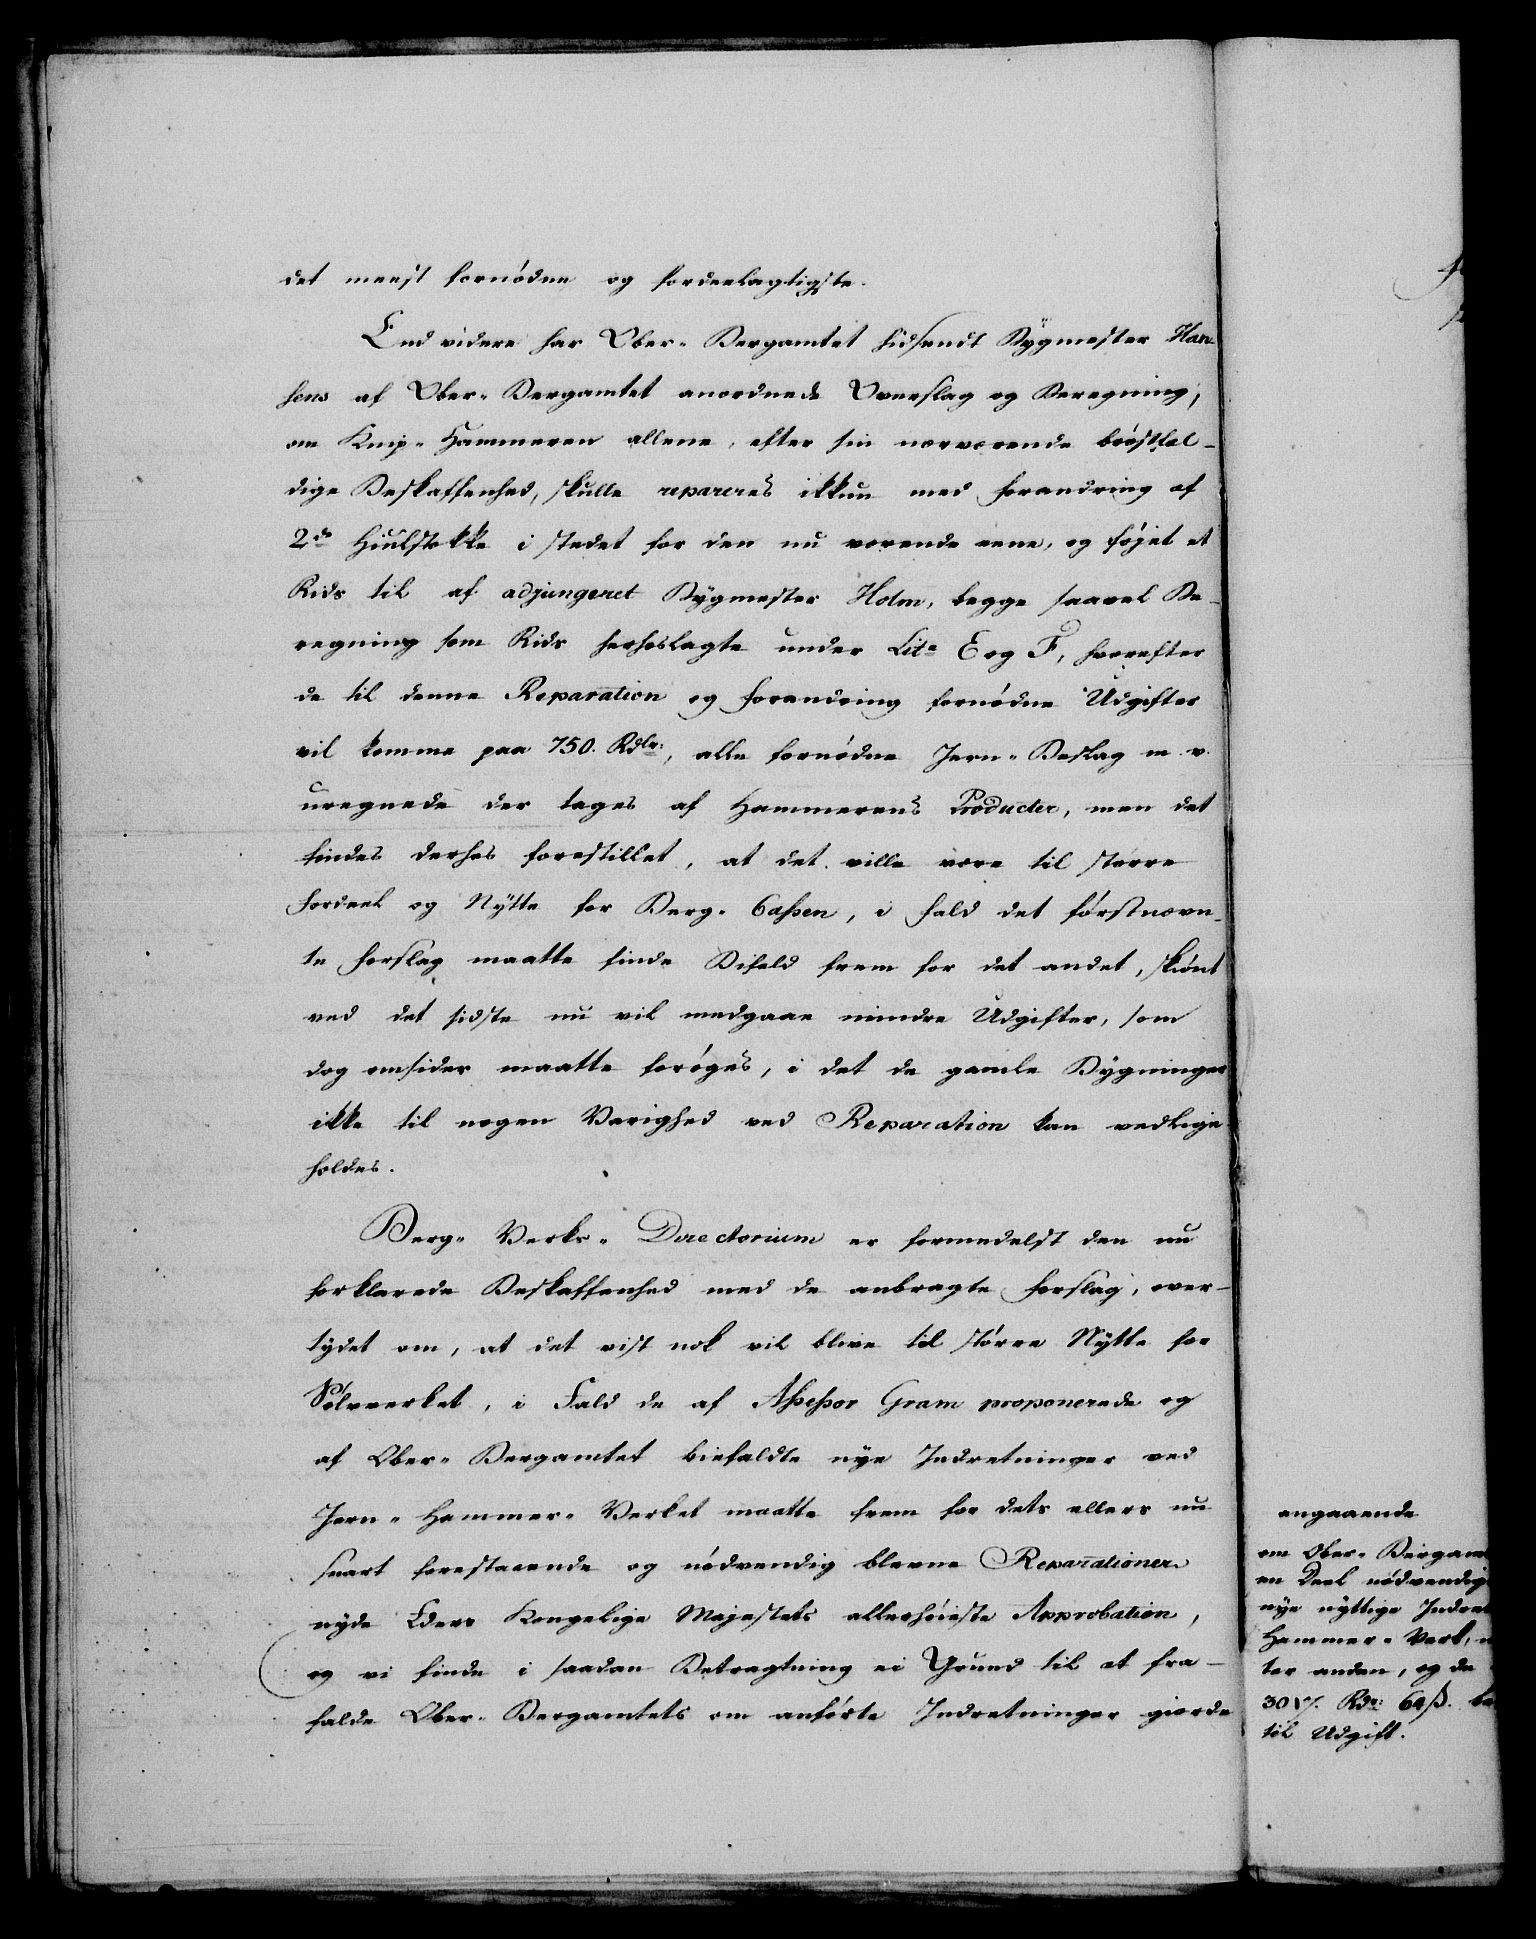 det meest fornødne og fordeelagtigste.
End videre har Ober-Bergamtet hidsendt Bygmester Han-
sens af Ober-Bergamtet anordnede Overslag og Beregning,
om Knip-Hammeren allene, efter sin nærværende brøstfel-
dige Beskaffenhed, skulle repareres ikkun med forandring af
2de Hiulstokke i stedet for den nu værende eene, og føjet et
Rids til af adjungeret Bygmester Holm, begge saavel Be-
regning som Rids herhoslagte under Lita E og F, hvorefter
de til denne Reparation og forandring fornødne Udgifter
vil komme paa 750. Rdlr:, alle fornødne Jern-Beslag m. v.
uregnede der tages af Hammerens Producter, men det
findes derhos forestillet, at det ville være til større
fordeel og Nytte for Berg-Cassen, i fald det førstnævn-
te forslag maatte finde Bifald frem for det andet, skiønt
ved det sidste nu vil medgaae mindre Udgifter, som
dog omsider maatte forøges, i det de gamle Bygninger
ikke til nogen Varighed ved Reparation kan vedlige
holdes.
Berg-Verks-Directorium er formedelst den nu
forklarede Beskaffenhed med de anbragte forslag, over-
tydet om, at det vist nok vil blive til større Nytte for
Sølvverket, i Fald de af Assessor Gram proponerede og
af Ober-Bergamtet biefaldte nye Indretninger ved
Jern-Hammer-Verket maatte frem for dets ellers nu
snart forestaaende og nødvendig blevne Reparationer
nyde Eders Kongelige Majestets allerhøieste Approbation,
og vi finde i saadan Betragtning ei Grund til at fra-
falde Ober-Bergamtets om anførte Indretninger giorde
angaaende
om Ober-Bergam
en Deel nødvendig
nye nyttige Indret
Hammer-Verk,
ter anden, og de
Rdr: 64 ß.
til Udgift.